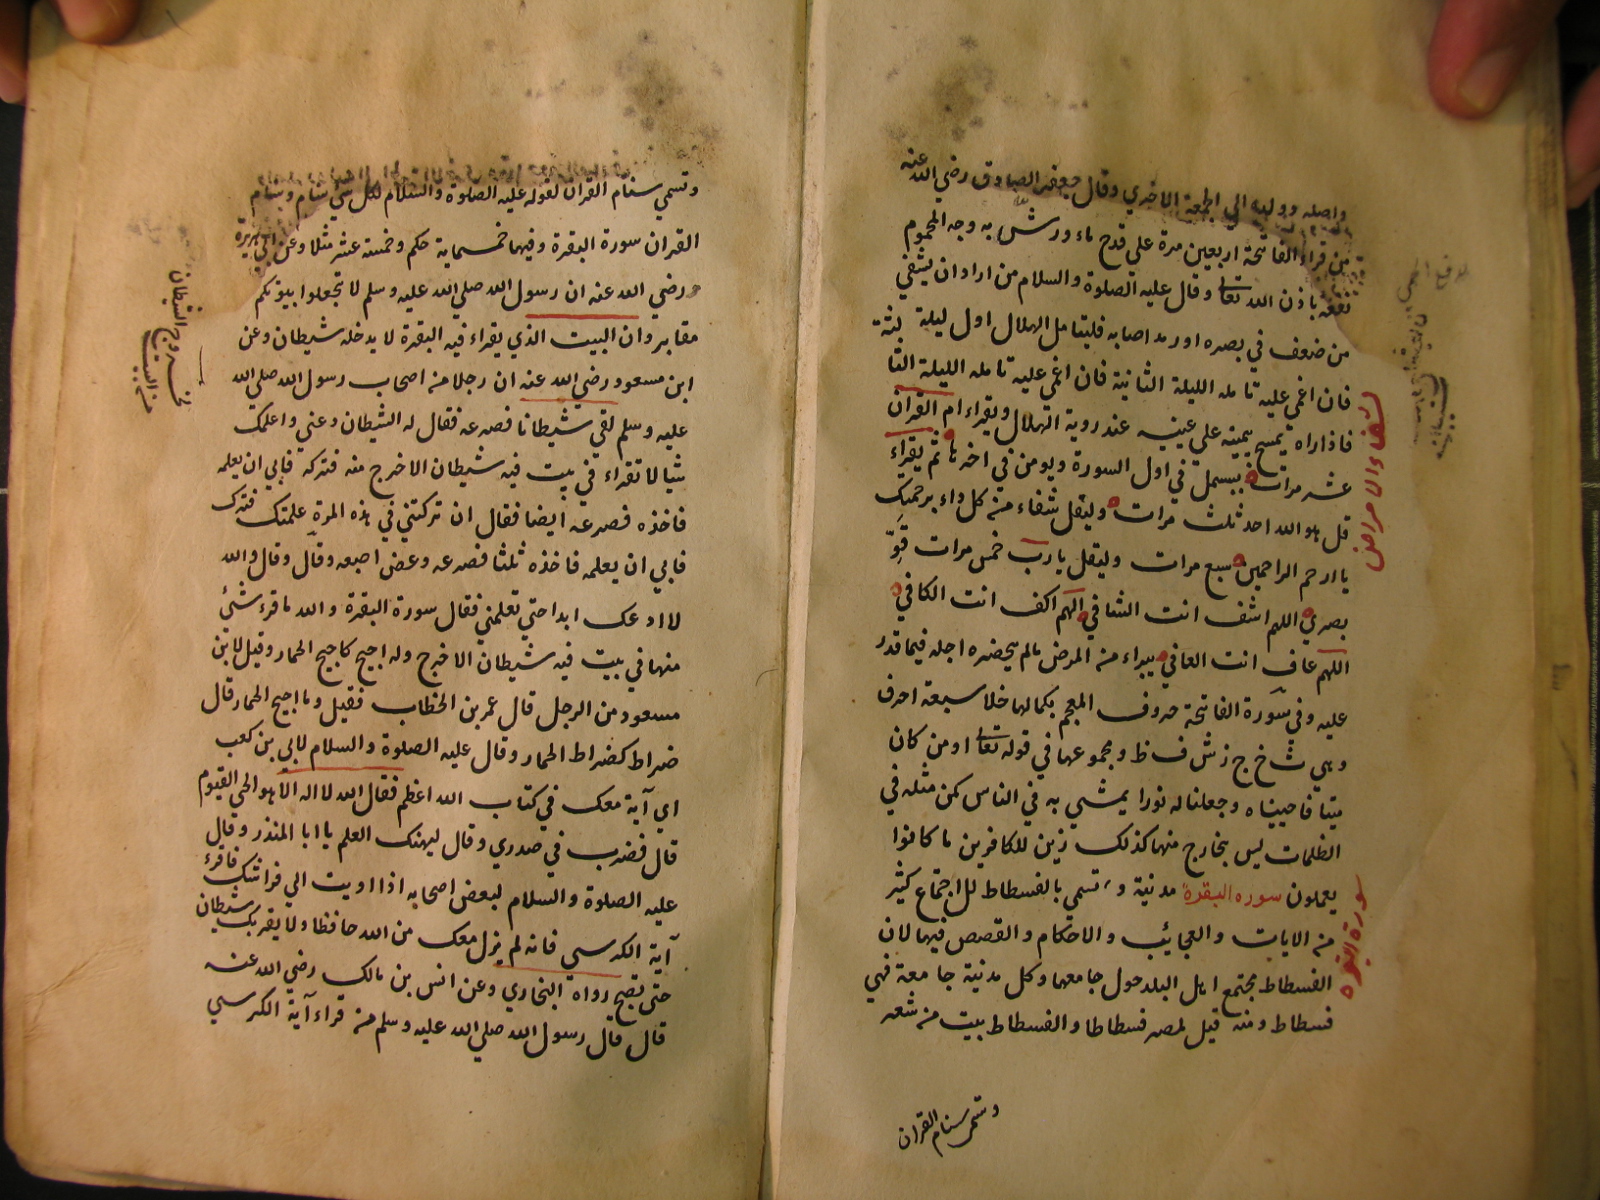 واصله وولديه الي اطعمة الاخري وقال جعفر الصادق رضي الله عنه
من قراء الفاتحة اربعين مرة علي قدح ماء ورش به وجه المحموم
نفعه باذن الله تعالي وقال عليه الصلوة والسلام من اراد ان يشفي
من ضعف في بصره او رمد اصابه فليتامل الهلال اول ليلة
فان اغمي عليه تامله الليلة الثانية فان اغمي عليه تامله الليلة الثا
لثة
فاذا راه يمسح بيمينه علي عينيه عند روية الهلال ويقراء ام القران
عشر مرات يبسمل في اول السورة ويومن في اخرها ثم يقراء
قل هو الله احد ثلث مرات وليقل شفاء من كل داء برحمتك
يا ارحم الراحمين سبع مرات وليقل يا رب خمس مرات قوّ
بصري اللهم اشف انت الشافي اللهم اكف انت الكافي
اللهم عاف انت العافي يبراء من المرض مالم يحضره اجله فيما قدر
عليه وفي سورة الفاتحة حروف المعجم بكمالها خلا سبعة احرف
وهي ث خ ج ز ش ف ظ ومجموعها في قوله تعالي او من كان
ميتا فاحييناه وجعلنا له نورا يمشي به في الناس كمن مثله في
الظلمات ليس بخارج منها كذلك زين للكافرين ما كانوا
يعملون سوره البقرة مدنية وتسمي بالفسطاط للاجتماع كثير
من الايات والعجائب والاحكام والقصص فيها لان
الفسطاط مجتمع اهل البلد حول جامعها وكل مدنية جامعة فهي
فسطاط ومنه قيل لمصر فسطاطا والفسطاط بيت من شعر
وتسمى سنام القران
شفاء والامراض
سورة البقره
وتسمي سنام القران لقوله عليه الصلوة والسلام لكل شي سنام وسنام
القران سورة البقرة وفيها خمسماية حكم وخمسة عشر مثلا وعن ابي هريرة
رضي الله عنه ان رسول الله صلي الله عليه وسلم لا تجعلوا بيوتكم
مقابر وان البيت الذي يقراء فيه البقرة لا يدخله شيطان وعن
ابن مسعود رضي الله عنه ان رجلا من اصحاب رسول الله صلي الله
عليه وسلم لقي شيطانا فصرعه فقال له الشيطان دعني واعلمك
شيا لا تقراء في بيت فيه شيطان الا خرج منه فتركه فابي ان يعلمه
فاخذه فصرعه ايضا فقال ان تركتني في هذه المرة علمتك فترك
فابي ان يعلمه فاخذه ثلثا فصرعه وعض اصبعه وقال وقال والله
لا ادعك ابدا حتي تعلمني فقال سورة البقرة والله ما قرء شئ
منها في بيت فيه شيطان الا خرج وله اجيح كاجيح الحمار وقيل لابن
مسعود من الرجل قال عمر بن الخطاب فقيل وما اجيح الحمار قال
ضراط كضراط الحمار وقال عليه الصلوة والسلام لابي بن كعب
اي آية معك في كتاب الله اعظم فقال الله لا اله الا هو الحي القيوم
قال فضرب في صدري وقال ليهنك العلم يا ابا المنذر وقال
عليه الصلوة والسلام لبعض اصحابه اذا اويت الي فراشك فاقرء
آية الكرسي فانه لم يزل معك من الله حافظا ولا يقربك شيطان
حتي تصبح رواه البخاري وعن انس بن مالك رضي الله عنه
قال قال رسول الله صلي الله عليه وسلم من قراء آية الكرسي
خروج الشيطان
من البيت